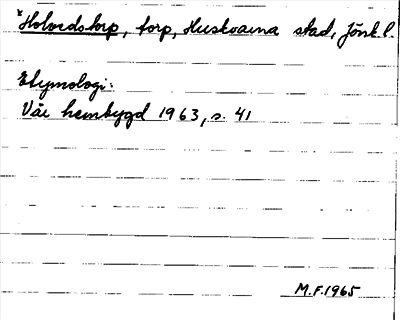 *Holvedstorp, torp, Huskvarna stad, Jönk.l.
Etymologi:
Vår hembygd 1963, s. 41
M.F.1965